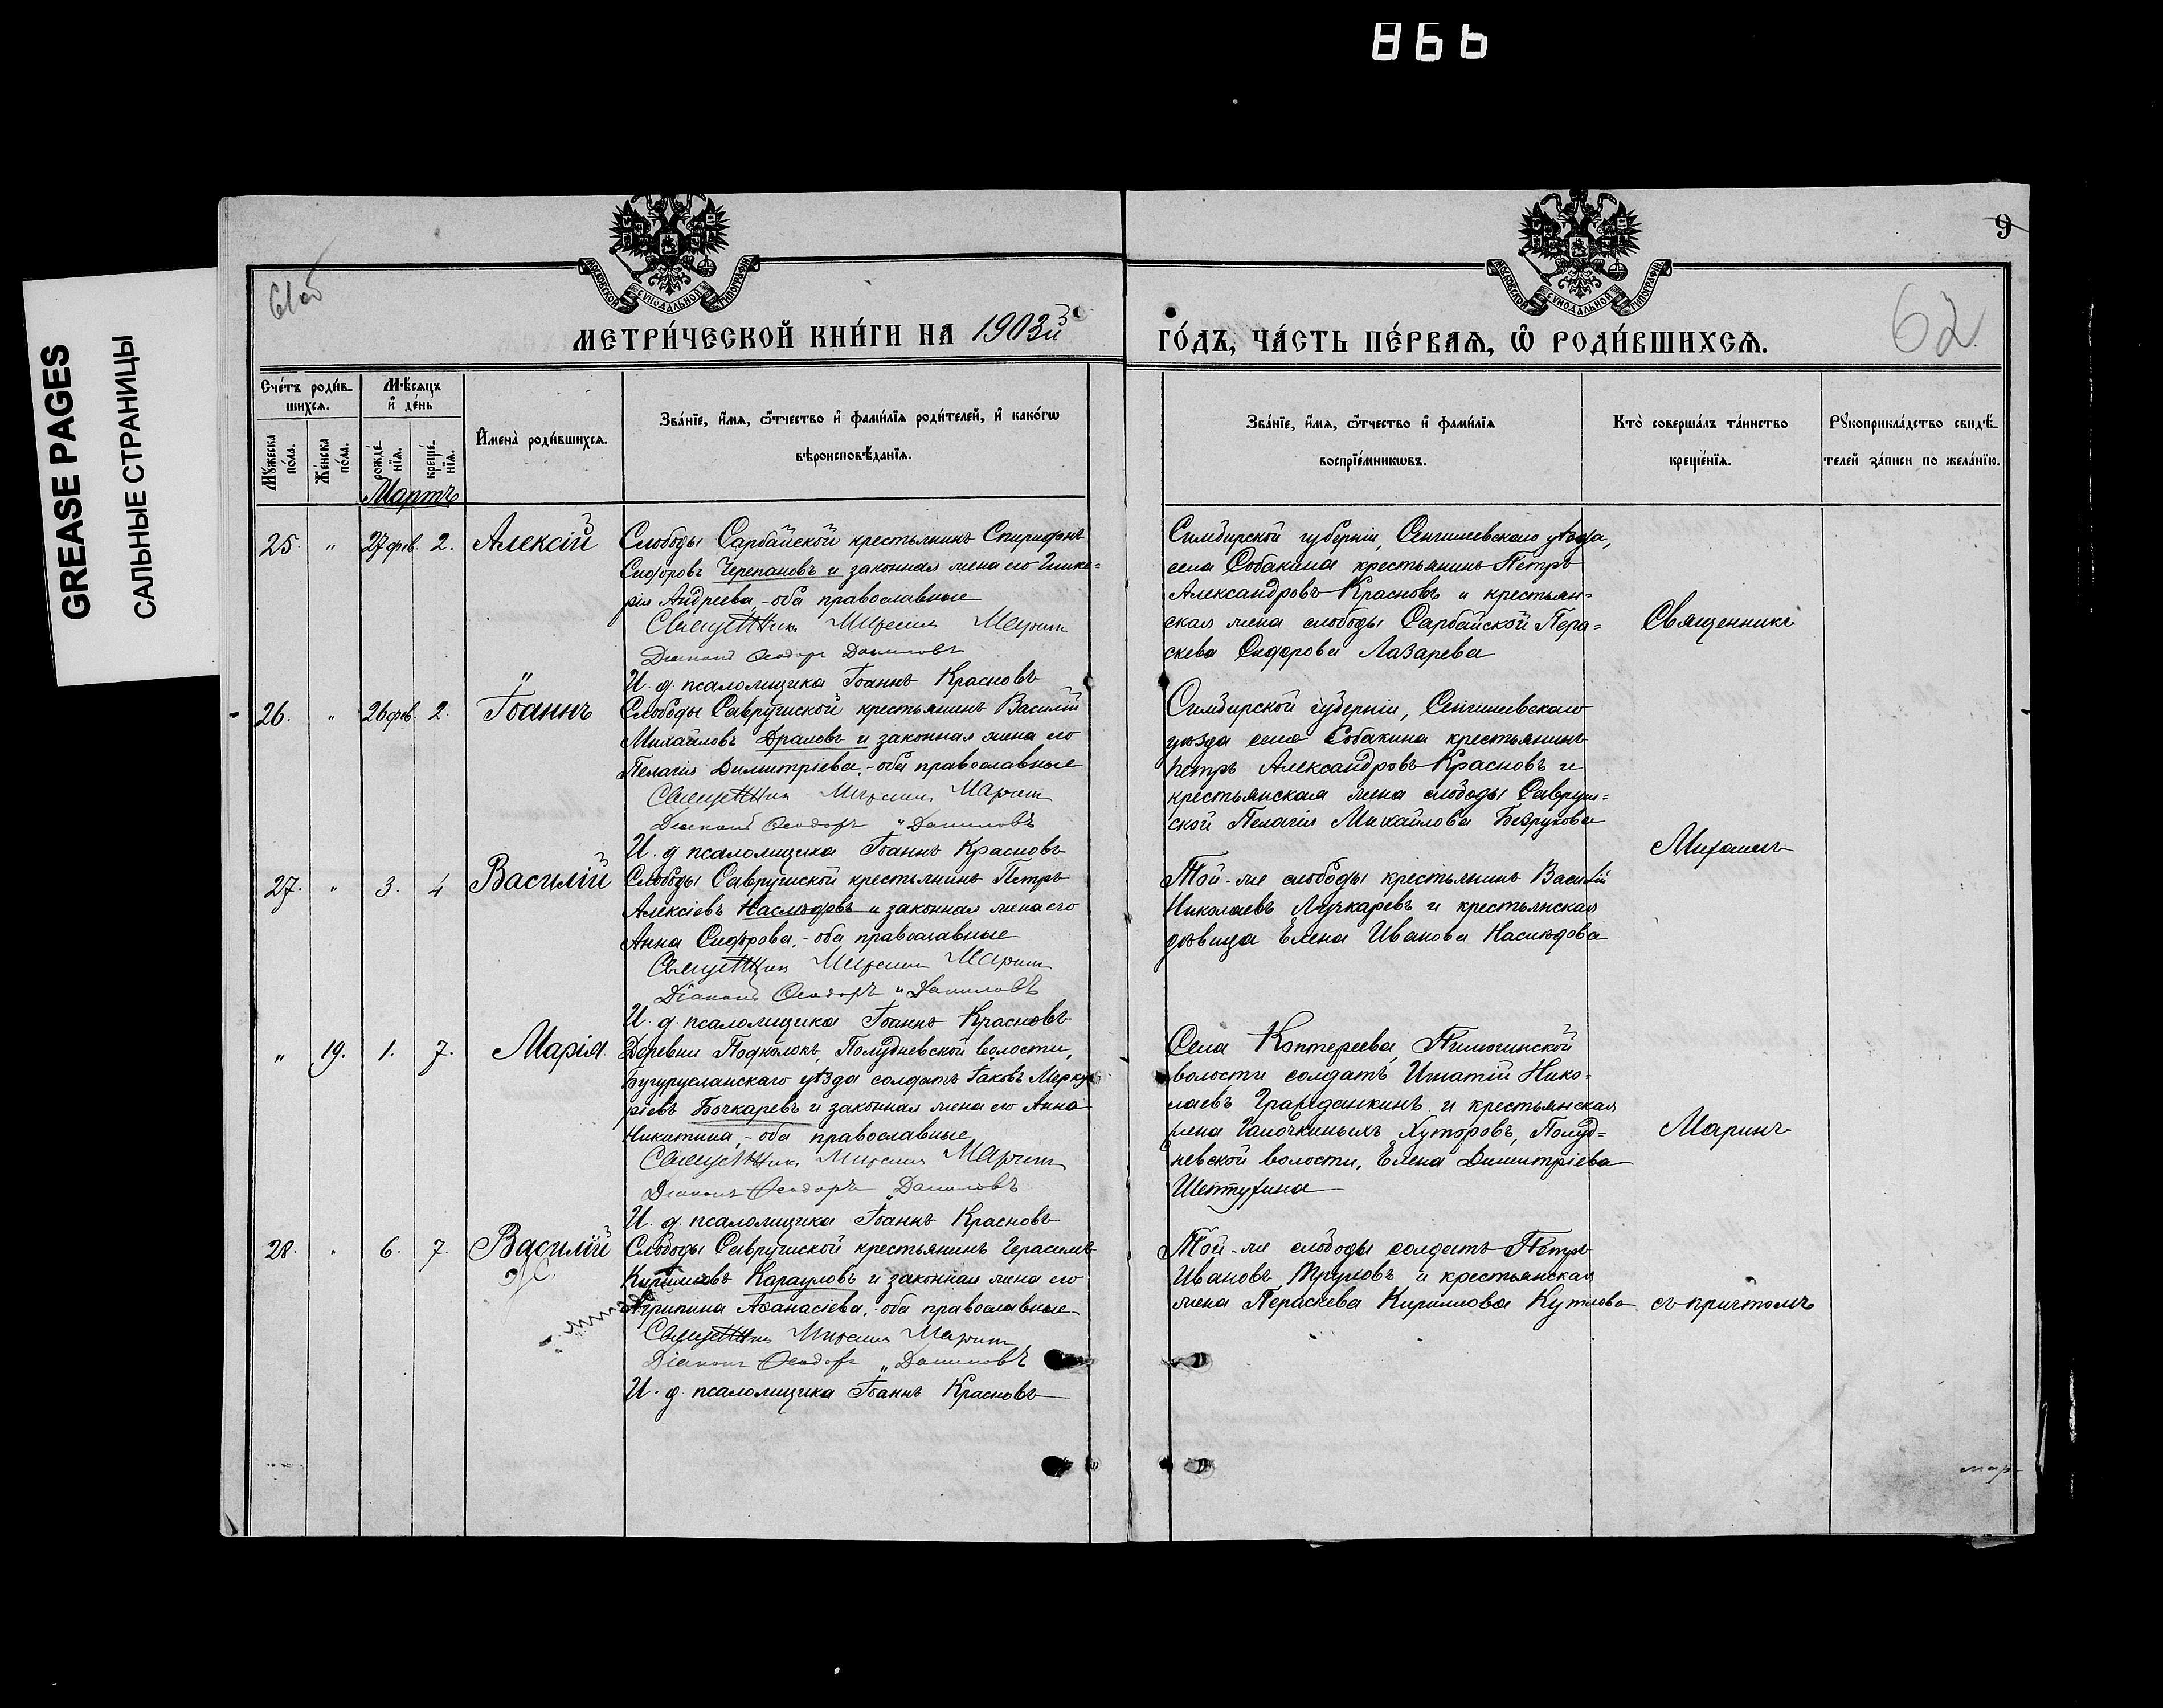 866
GREASE PAGES
САЛЬНЫЕ СТРАНИЦЫ
61об
9
62
МОСКОВСКОЙ СѴНОДАЛЬНОЙ ТИПОГРАФІИ
МОСКОВСКОЙ СѴНОДАЛЬНОЙ ТИПОГРАФІИ
МЕТРИ́ЧЕСКОЙ КНИ́ГИ НА 1903й
ГО́ДЪ, ЧА́СТЬ ПЕ́РВАѦ, Ѡ҆ РОДИ́ВШИХСѦ.
Сче́тъ роди́в-
шихсѧ.
Мѣ́сяцъ
и҆ де́нь
Мꙋжеска по́ла.
Же́нска по́ла.
рожде́нїѧ.
креще́нїѧ.
И҆мена̀ роди́вшихсѧ.
Зва́нїе, и҆́мѧ, ѻ҆́тчество и҆ фами́лїѧ роди́телей, и҆ како́гѡ
вѣроисповѣ́данїѧ.
Зва́нїе, и҆́мѧ, ѻ҆́тчество и҆ фами́лїѧ
воспрїе́мникѡвъ.
Кто̀ соверша́лъ та́инство
креще́нїѧ.
Рꙋкоприкла́дство свидѣ́-
телей за́писи по жела́нїю.
Мартъ
25. " 27 фев. 2. Алексій
Слободы Сарбайской крестьянинъ Спиридонъ
Сидоровъ Черепановъ и законная жена его Глике-
рія Андреева,-оба православные
Священникъ Михаилъ Маринъ
Діаконъ Ѳеодоръ Даниловъ
И. д. псаломщика Іоаннъ Красновъ
Симбирской губерніи, Сенгилеевскаго уѣзда,
села Собакина крестьянинъ Петръ
Александровъ Красновъ и крестьян-
ская жена слободы Сарбайской Пера-
скева Сидорова Лазарева
Священникъ
26. " 26 фев. 2. Іоаннъ
Слободы Саврушской крестьянинъ Василій
Михайловъ Драловъ и законная жена его
Пелагія Димитріева,-оба православные
Священникъ Михаилъ Маринъ
Діаконъ Ѳеодоръ Даниловъ
И. д. псаломщика Іоаннъ Красновъ
Симбирской губерніи, Сенгилеевскаго
уѣзда села Собакина крестьянинъ
Петръ Александровъ Красновъ и
крестьянская жена слободы Савруш-
ской Пелагія Михайлова Безрукова
Михаилъ
27. " 3. 4 Василій
Слободы Саврушской крестьянинъ Петръ
Алексіевъ Наслѣдовъ и законная жена его
Анна Сидорова,-оба православные
Священникъ Михаилъ Маринъ
Діаконъ Ѳеодоръ Даниловъ
И. д. псаломщика Іоаннъ Красновъ
Той-же слободы крестьянинъ Василій
Николаевъ Лучкаревъ и крестьянская
дѣвица Елена Иванова Наслѣдова
" 19. 1. 7. Марія.
Деревни Подколокъ, Полудневской волости,
Бугурусланскаго уѣзда солдатъ Іаковъ Мерку-
ріевъ Бочкаревъ и законная жена его Анна
Никитина,-оба православные
Священникъ Михаилъ Маринъ
Діаконъ Ѳеодоръ Даниловъ
И. д. псаломщика Іоаннъ Красновъ
Села Коптереева, Пилюгинской
волости солдатъ Игнатій Нико-
лаевъ Гражданкинъ и крестьянская
жена Галочкиныхъ Хуторовъ, Полуд-
невской волости, Елена Димитріева
Шептухина
Маринъ
28. " 6. 7. Василій
Слободы Саврушской крестьянинъ Герасимъ
Кирилловъ Карауловъ и законная жена его
Агрипина Аѳанасіева,-оба православные
Священникъ Михаилъ Маринъ
Діаконъ Ѳеодоръ Даниловъ
И. д. псаломщика Іоаннъ Красновъ
Той-же слободы солдатъ Петръ
Ивановъ Труховъ и крестьянская
жена Параскева Кириллова Кутлова
съ причтомъ